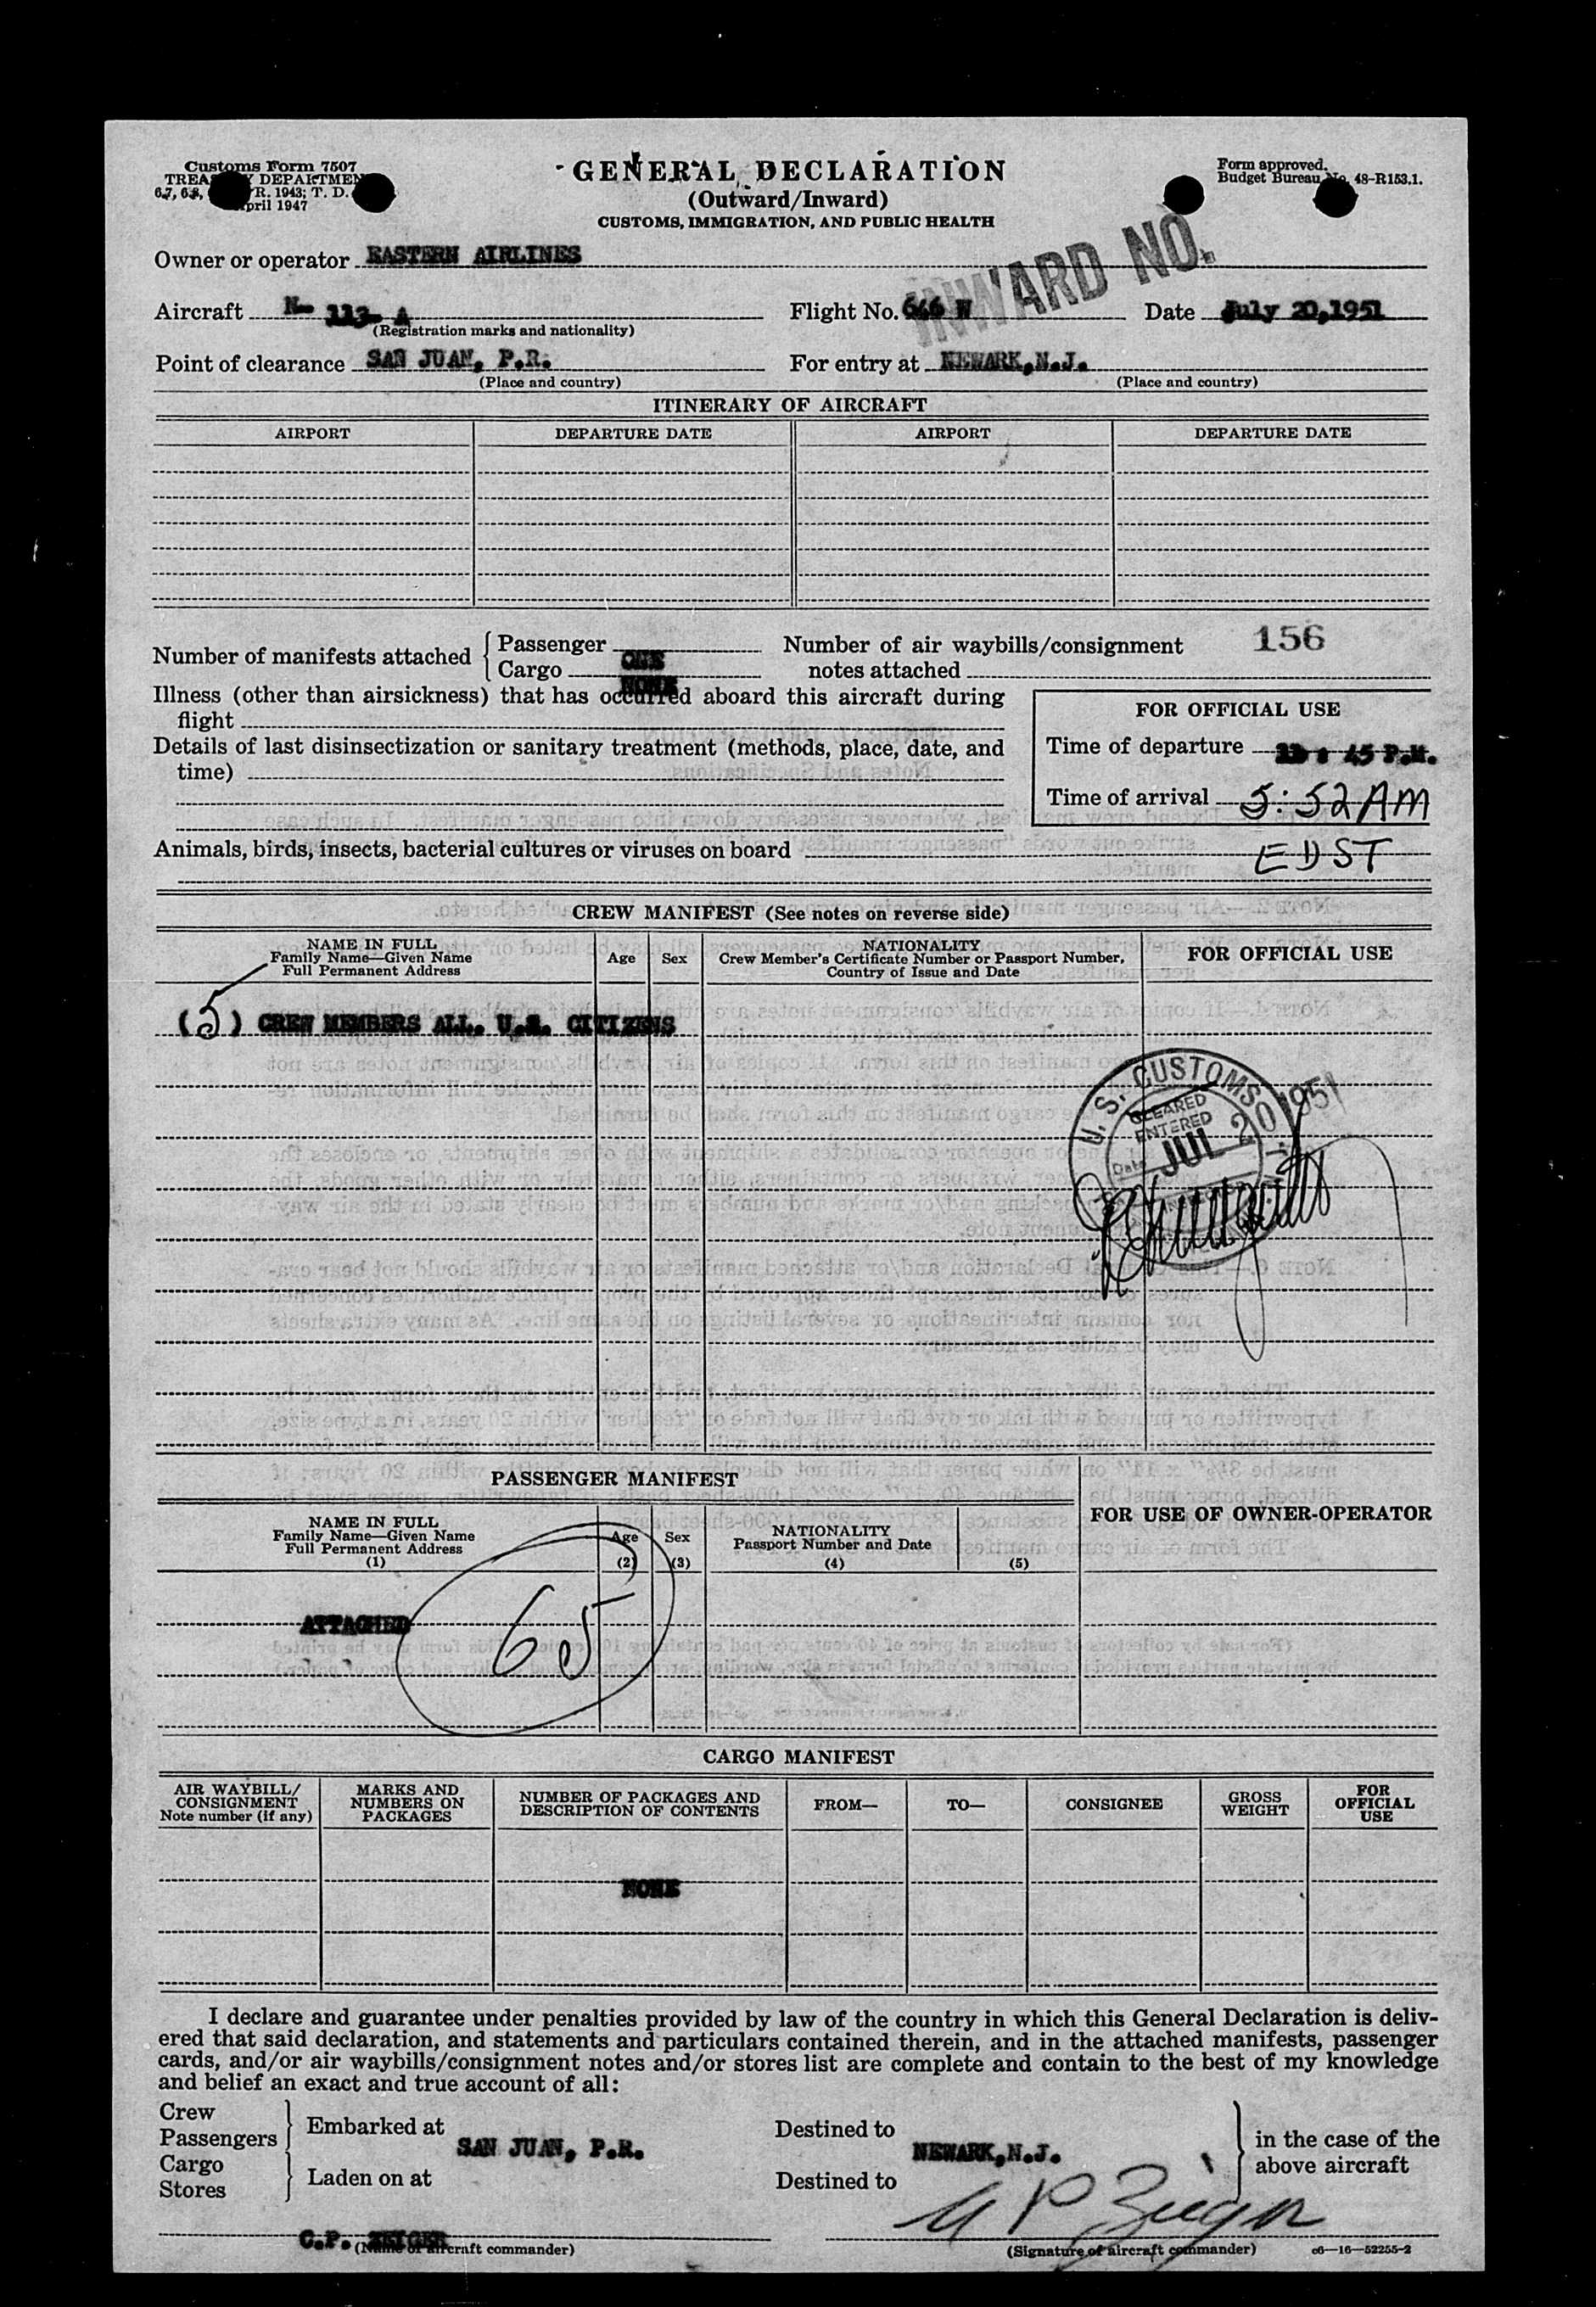 Customs Form 7507
TREA DEPARTMEN
R. 1943; T. D.
pril 1947
GENERAL DECLARATION
(Outward/Inward)
CUSTOMS, IMMIGRATION, AND PUBLIC HEALTH
Form approved.
Budget Bureau No. 48-R153.1.
INWARD NO.
Owner or operator EASTERN AIRLINES
Aircraft N- 113- A Flight No. 646 W Date July 20,1951
(Registration marks and nationality)
Point of clearance SAN JUAN, P.R. For entry at NEWARK,N.J.
(Place and country) (Place and country)
ITINERARY OF AIRCRAFT
AIRPORT DEPARTURE DATE AIRPORT DEPARTURE DATE
Number of manifests attached { Passenger ONE
Cargo NONE
Number of air waybills/consignment
notes attached
156
Illness (other than airsickness) that has occurred aboard this aircraft during
flight
Details of last disinsectization or sanitary treatment (methods, place, date, and
time)
FOR OFFICIAL USE
Time of departure : 45 P.M.
Time of arrival 5:52 AM
EDST
Animals, birds, insects, bacterial cultures or viruses on board
CREW MANIFEST (See notes on reverse side)
NAME IN FULL
Family Name—Given Name
Full Permanent Address
Age
Sex
NATIONALITY
Crew Member's Certificate Number or Passport Number,
Country of Issue and Date
FOR OFFICIAL USE
(5) CREW MEMBERS ALL. U.S. CITIZENS
U. S. CUSTOMS
CLEARED
ENTERED
Date JUL 20 1951
PASSENGER MANIFEST
NAME IN FULL
Family Name—Given Name
Full Permanent Address
(1)
Age
(2)
Sex
(3)
NATIONALITY
Passport Number and Date
(4)
(5)
FOR USE OF OWNER-OPERATOR
ATTACHED 65
CARGO MANIFEST
AIR WAYBILL/
CONSIGNMENT
Note number (if any)
MARKS AND
NUMBERS ON
PACKAGES
NUMBER OF PACKAGES AND
DESCRIPTION OF CONTENTS
FROM—
TO—
CONSIGNEE
GROSS
WEIGHT
FOR
OFFICIAL
USE
NONE
I declare and guarantee under penalties provided by law of the country in which this General Declaration is deliv-
ered that said declaration, and statements and particulars contained therein, and in the attached manifests, passenger
cards, and/or air waybills/consignment notes and/or stores list are complete and contain to the best of my knowledge
and belief an exact and true account of all:
Crew
Passengers
Cargo
Stores
Embarked at SAN JUAN, P.R.
Laden on at
Destined to NEWARK,N.J.
Destined to
in the case of the
above aircraft
C.P. ZEIGER
(Name of aircraft commander)
(Signature of aircraft commander)
c6—16—52255-2